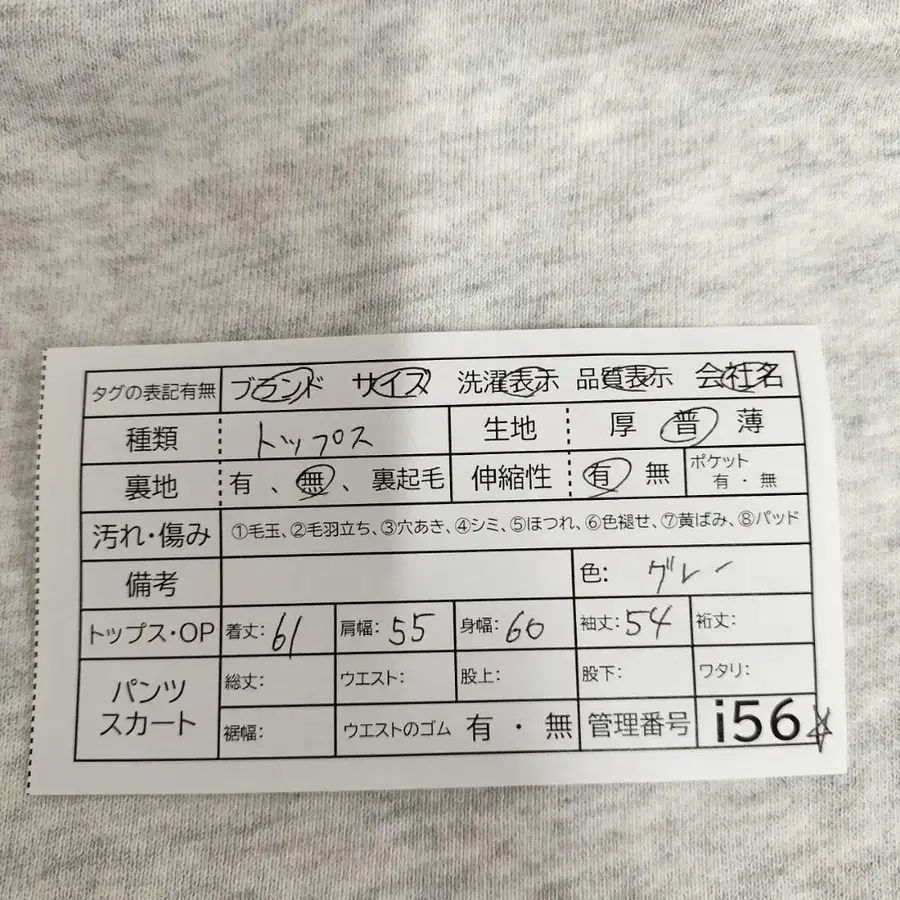 タグの表記有無 ブランド サイズ 洗濯表示 品質表示 会社名
種類 トップス 生地 厚 普 薄
裏地 有 、無、裏起毛 伸縮性 有 無 ポケット 有・無
汚れ・傷み ①毛玉、②毛羽立ち、③穴あき、④シミ、⑤ほつれ、⑥色褪せ、⑦黄ばみ、⑧パッド
備考 色: グレー
トップス・OP 着丈: 61 肩幅: 55 身幅: 60 袖丈: 54 裄丈:
パンツ スカート 総丈: ウエスト: 股上: 股下: ワタリ:
裾幅: ウエストのゴム 有・無 管理番号 i56☆